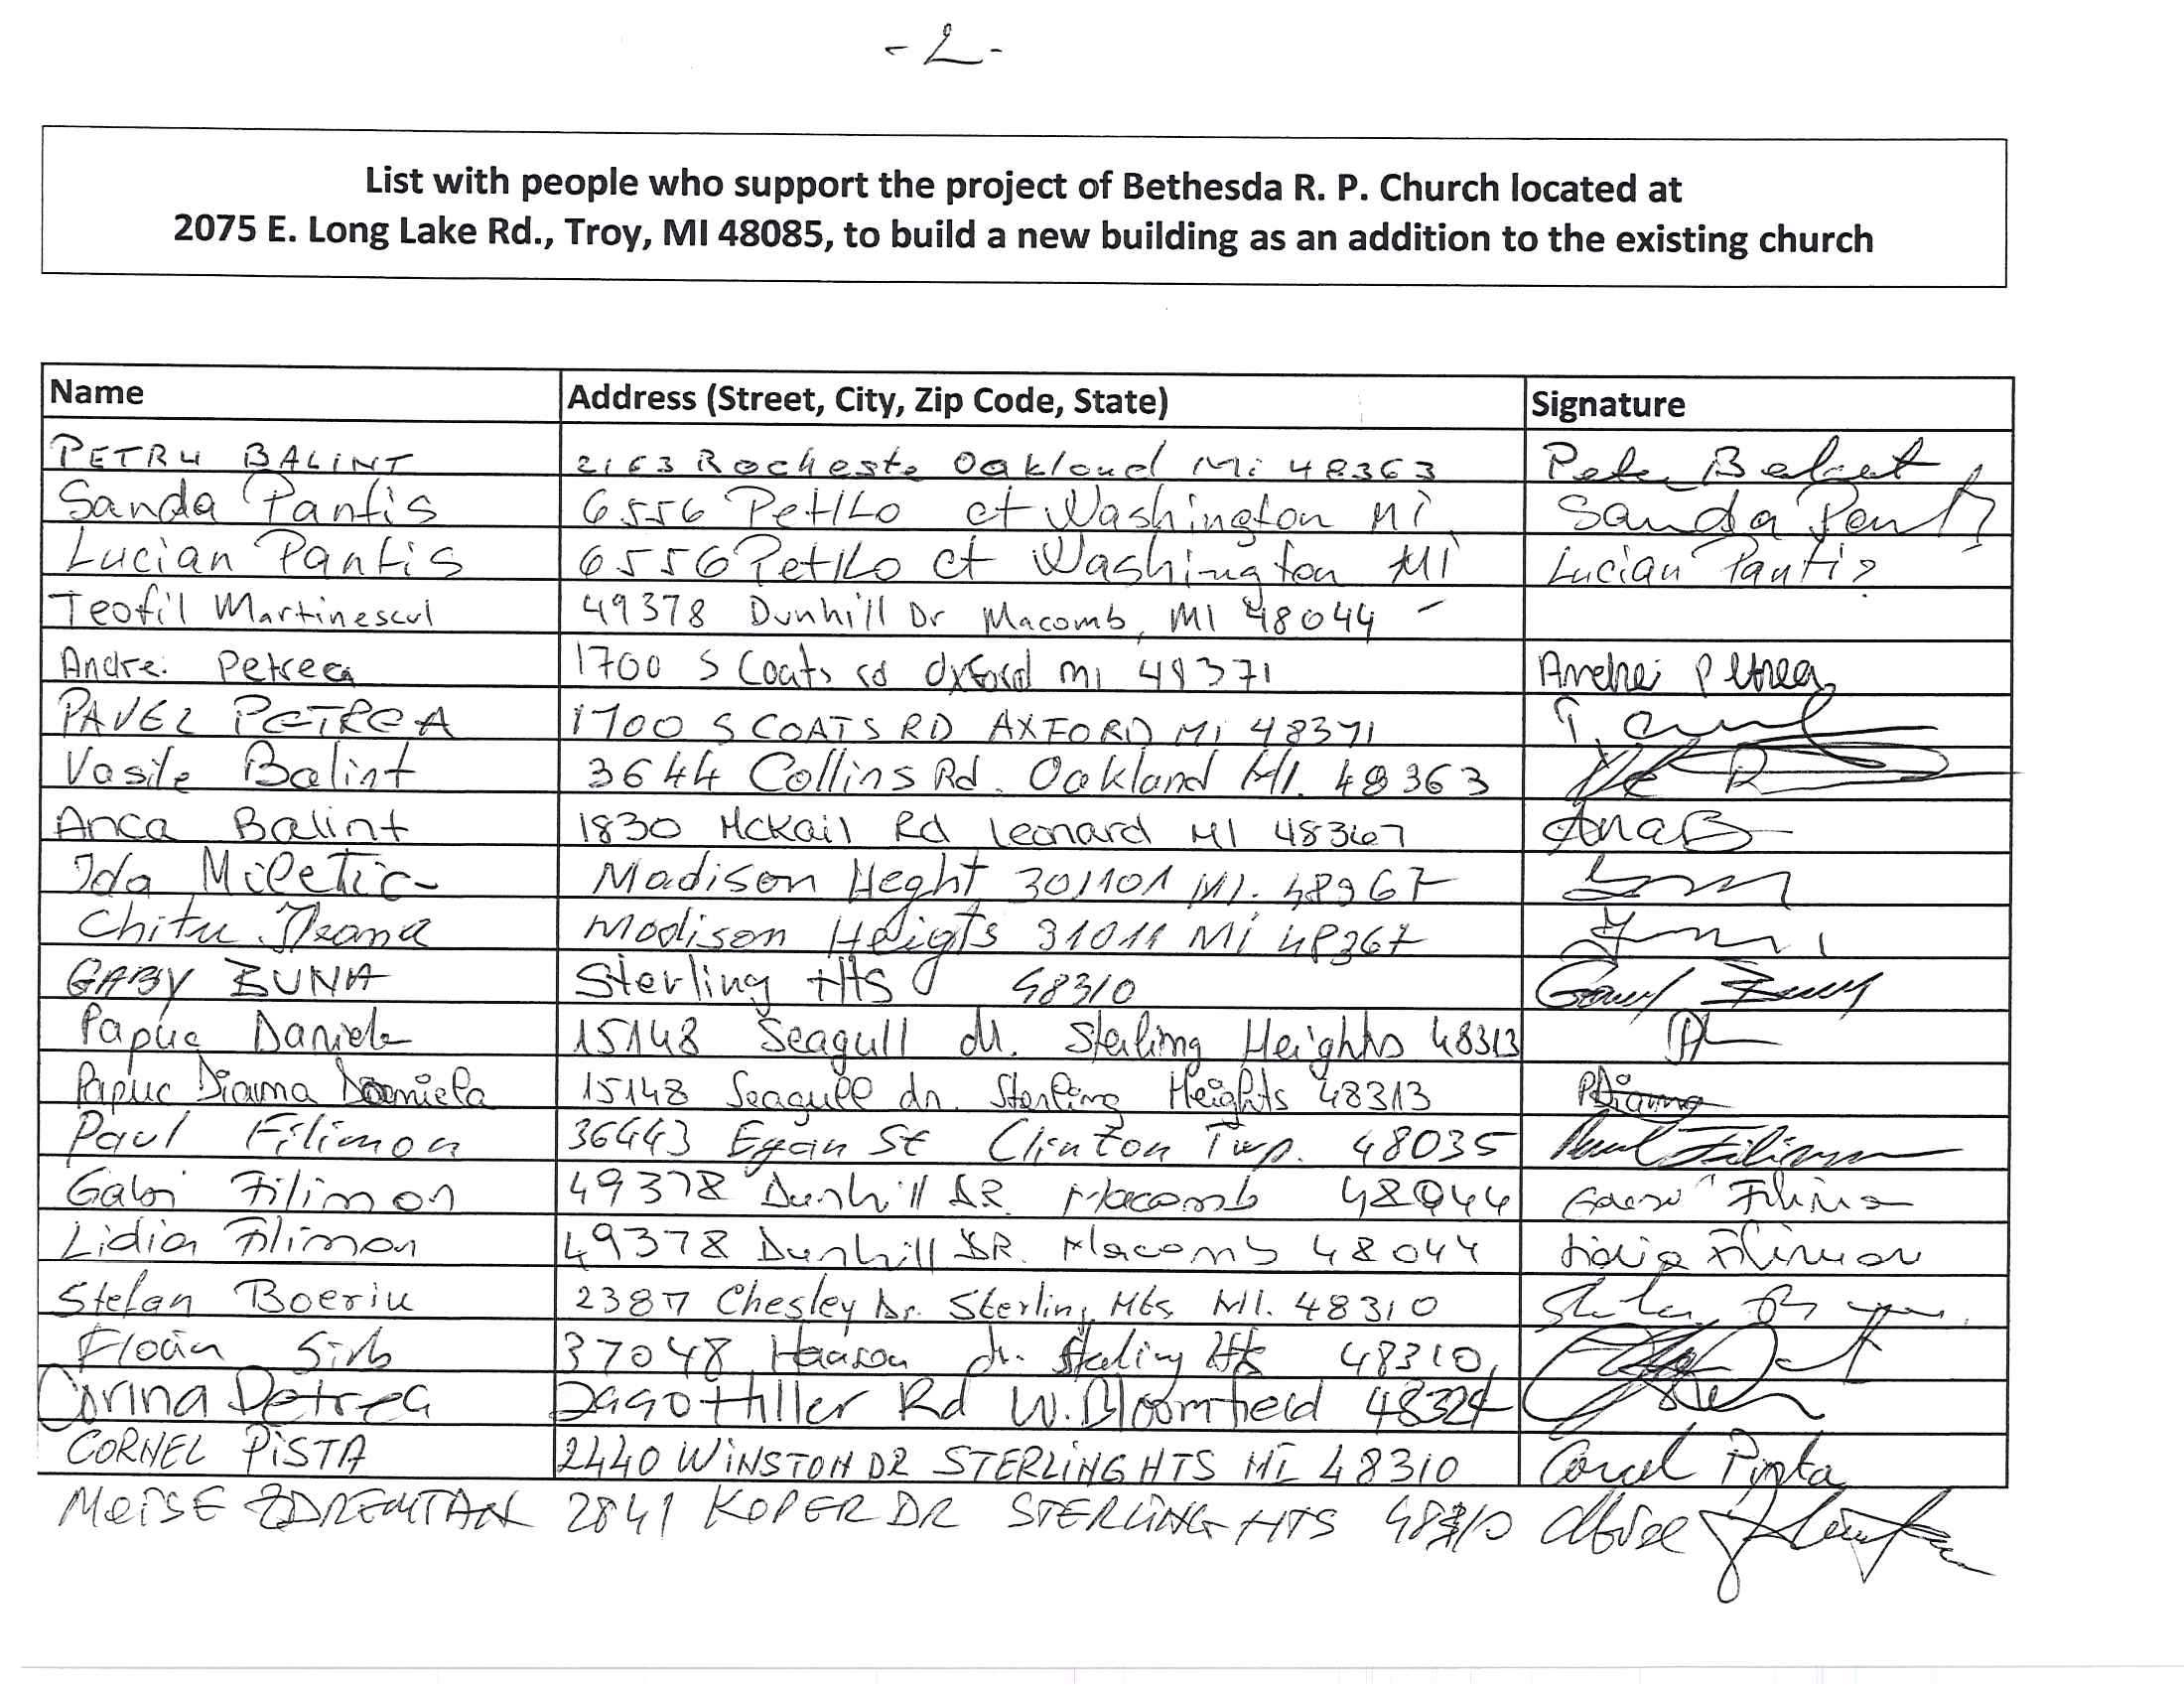 - 2 -
List with people who support the project of Bethesda R. P. Church located at
2075 E. Long Lake Rd., Troy, MI 48085, to build a new building as an addition to the existing church
Name Address (Street, City, Zip Code, State) Signature
PETRU BALINT 2163 Rocheste Oakland Mi 48363
Sanda Pantis 6556 Ct Washington Mi Sanda
Lucian Pantis 6556 Ct Washington Mi Lucian Pantis
Teofil Martinescul 49378 Dunhill Dr Macomb, MI 48044 -
Andrei Petrea 1700 S Coats rd Oxford mi 48371 Andrei Petrea
PAVEL PETREA 1700 S COATS RD AXFORD Mi 48371
Vasile Balint 3644 Collins Rd. Oakland MI. 48363
Anca Balint 1830 McKail Rd Leonard MI 48367
Ida Miletic Madison Heght 301101 MI. 48967
Chitu Ileana Madison Heigts 31011 Mi 48367
GABY BUNA Sterling Hts 48310
Papuc Daniel 15148 Seagull dr. Sterling Heights 48313
Papuc Diana Daniela 15148 Seagull dr. Sterling Heights 48313 PDiana
Paul Filimon 36443 Egan St Clinton Twp. 48035 Paul Filimon
Gabi Filimon 49378 Dunhill DR. Macomb 48044 Filimon
Lidia Filimon 49378 Dunhill DR. Macomb 48044 Lidia Filimon
Stefan Boeriu 2387 Chesley Dr. Sterling Hts MI. 48310
Sirb 37048 dr. Sterling Hts 48310
Corina Petrea Hiller Rd W. Bloomfield 48324
CORNEL PiSTA 2440 WiNSTON DR STERLiNG HTS Mi 48310 Cornel Pista
MOiSE 2841 KOPER DR STERLiNG HTS 48310 Moise